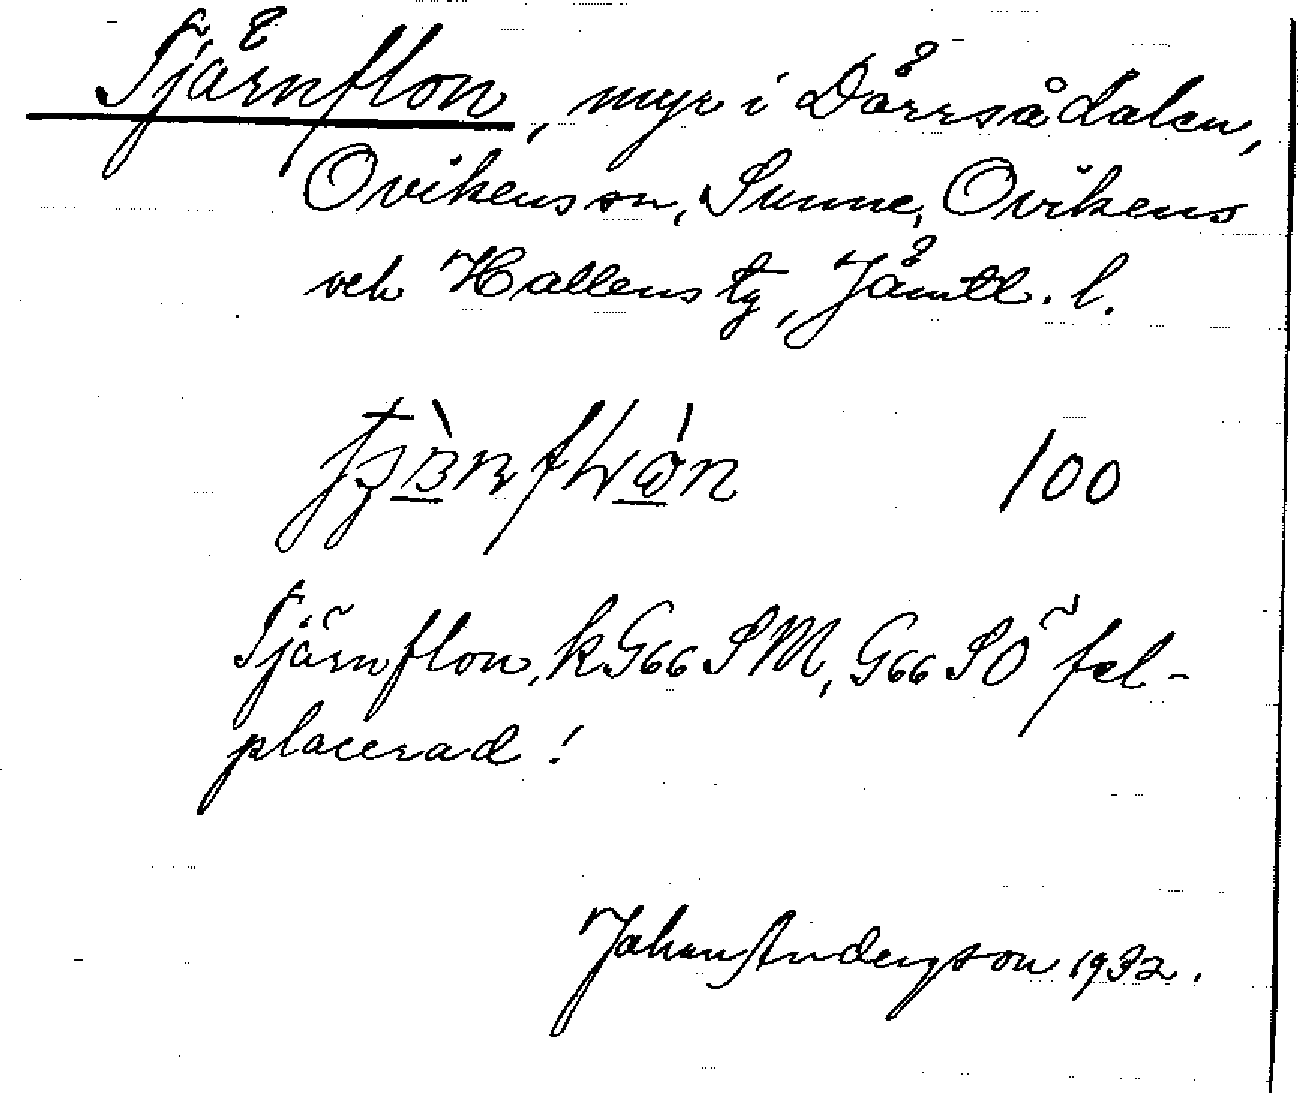 Tjärnflon, myr i Dörrsådalen,
Ovikens sn, Sunne, Ovikens
och Hallens tg, Jämtl. l.
100
Tjärnflon, k G66 SM, G66 SO fel-
placerad!
Johan Anderson 1932.